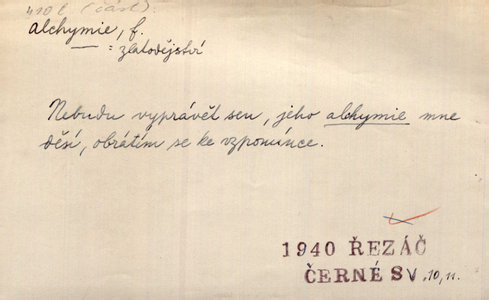 (část)
alchymie, f.
= zlatodějství
Nebudu vyprávět sen, jeho alchymie mne
děsí, obrátím se ke vzpomínce.
1940 ŘEZÁČ
ČERNÉ SV. 10, 11.